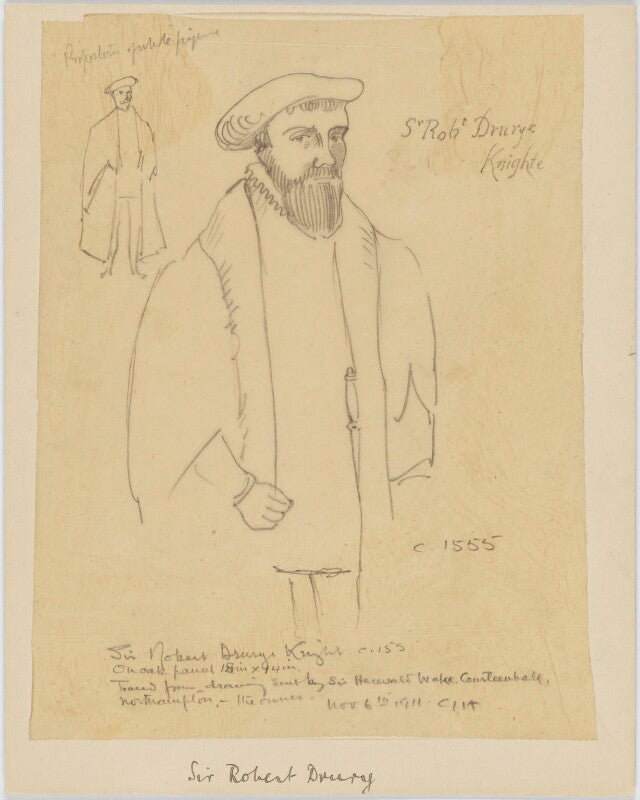 Proportion of whole figure
Sr Robt Drurye
Knighte
c. 1555
Sir Robert Drurye Knight c. 155
On oak panel 18in x 14in.
Traced from drawing sent by Sir Hereward Wake Courteenhall,
Northampton, – the owner. Nov 6th 1911.
Sir Robert Drury